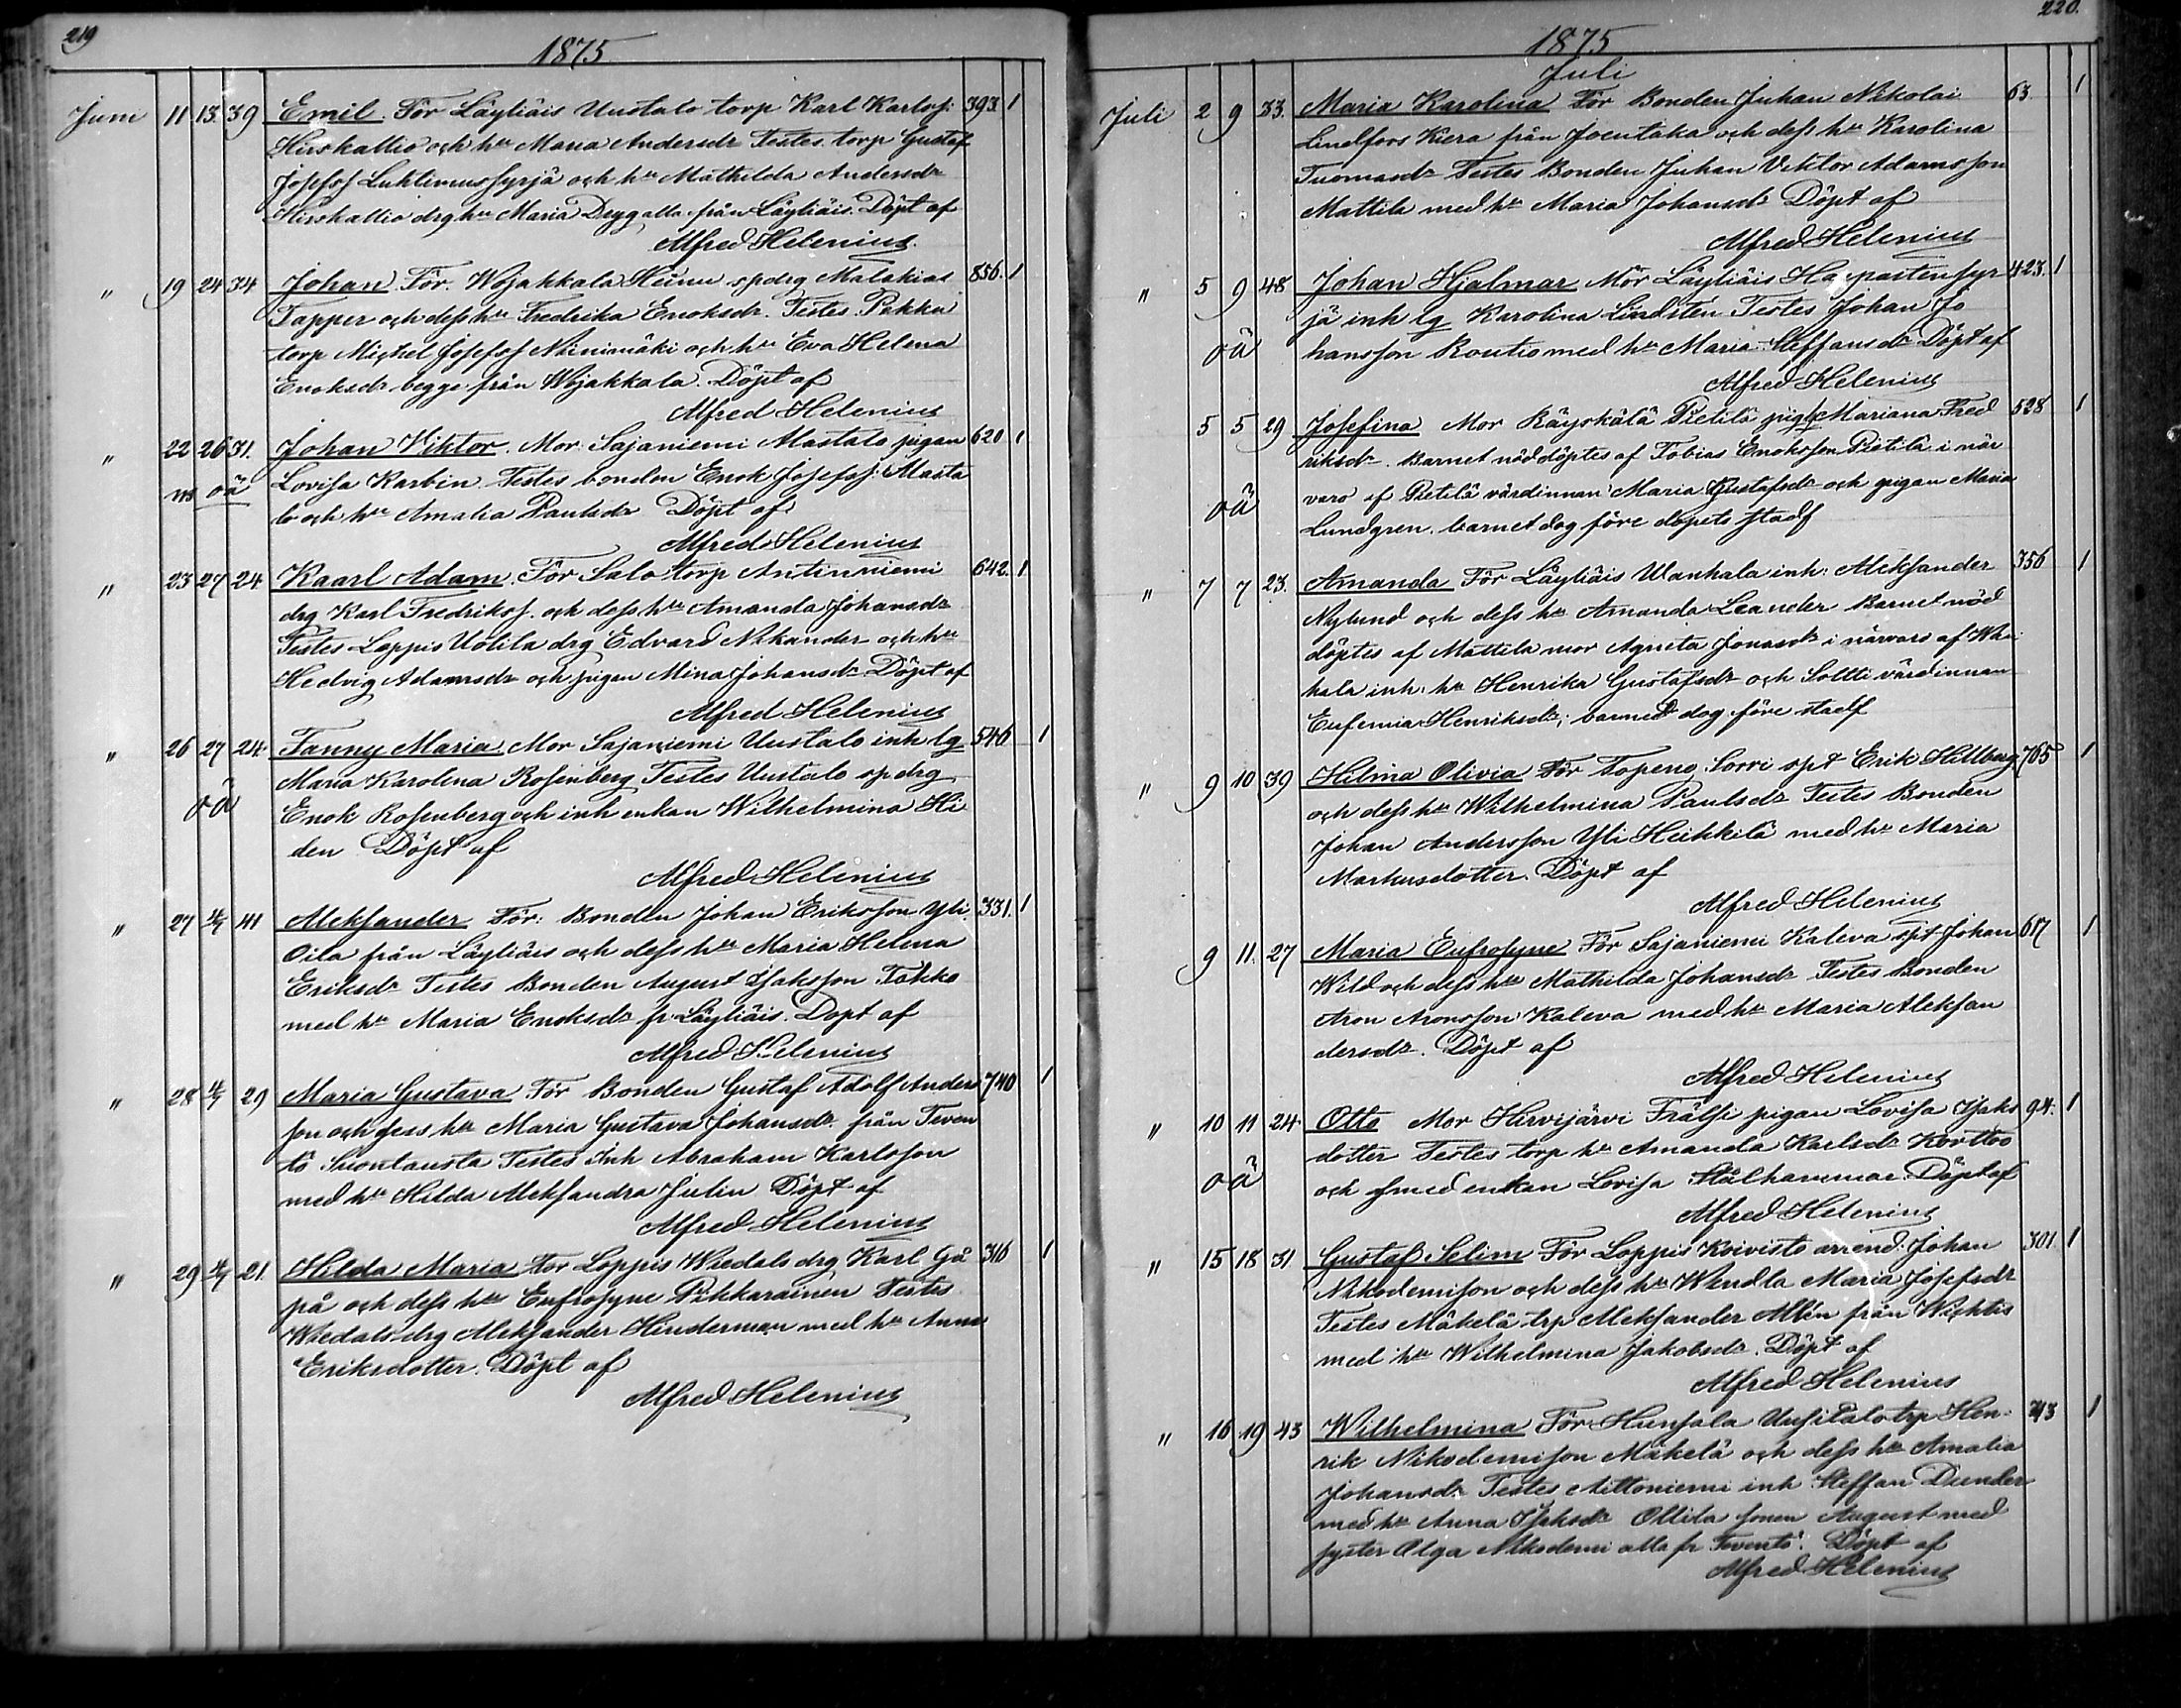 219
1875
Juni 11 13 39 Emil. För Läyliäis Uustalo torp Karl Karlsf. 393 1
Hirskallio och hu Maria Andersdr Testes torp Gustaf
Josefsf Luhtimussyrjä och hu Mathilda Andersdr
Hirskallio drg hu Maria Drygalla från Läyliäis. Döpt af
Alfred Helenius.
" 19 24 34 Johan. För. Wojakkala Heinu spdrg Malakias 856. 1
Tapper och dess hu Fredrika Enoksdr. Testes Pekku
torp Michel Josefsf Niinimäki och hu Eva Helena
Enoksdr begge från Wojakkala. Döpt af
Alfred Helenius
" 22 26 31. Johan Viktor. Mor. Sajaniemi Mastalo pigan 620 1
oä Lovisa Karbin Testes bonden Enok Josefsf. Masta
lo och hu Amalia Paulsdr Döpt af
Alfred Helenius
" 23 27 24 Kaarl Adam. För Salo torp Antinniemi 642. 1
drg Karl Fredriksf. och dess hu Amanda Johansdr
Testes Loppis Uotila drg Edvard Nikander och hu
Hedvig Adamsdr och pigan Mina Johansdr Döpt af
Alfred Helenius
" 26 27 24 Fanny Maria Mor Sajaniemi Uustalo inh lg 546 1
oä Maria Karolina Rosenberg Testes Uustalo sp drg
Enok Rosenberg och inh enkan Wilhelmina Hi
den Döpt af
Alfred Helenius
" 27 4/7 41 Aleksander För: Bonden Johan Eriksson Yli 331. 1
Oila från Läyliäis och dess hu Maria Helena
Eriksdr Testes Bonden August Isaksson Takko
med hu Maria Enoksdr fr Läyliäis. Döpt af
Alfred Helenius
" 28 4/7 29 Maria Gustava För Bonden Gustaf Adolf Anders 740 1
son och dess hu Maria Gustava Johansdr från Teven
tö Suontausta Testes Inh Abraham Karlsson
med hu Hilda Aleksandra Julin Döpt af
Alfred Helenius
" 29 4/7 21. Hilda Maria För Loppis Wiedals drg Karl Gå 316 1
på och dess hu Eufrosyne Pikkarainen Testes
Wiedals drg Aleksander Hinderman med hu Anna
Eriksdotter. Döpt af
Alfred Helenius
220.
1875
Juli
Juli 2 9 33. Maria Karolina För Bonden Juhan Nikolai 63. 1
Lindfors Kiera från Joentaka och dess hu Karolina
Tuomasdr Testes Bonden Juhan Viktor Adamsson
Mattila med hu Maria Johansdr Döpt af
Alfred Helenius
" 5 9 48 Johan Hjalmar Mor Läyliäis Haapastensyr 423. 1
jä inh lg Karolina Lindsten Testes Johan Jo
oä hansson Routio med hu Maria Steffansdr Döpt af
Alfred Helenius
5 5 29 Josefina Mor Räyskälä Pietilä pig Mariana Fred 528 1
riksdr. Barnet nöddöptes af Tobias Enoksson Pietilä i när
oä varo af Pietilä värdinnan Maria Gustafsdr och pigan Maria
Lundgren. barnet dog före dopets stadf
" 7 7 23. Amanda För Läyliäis Wanhala inh: Aleksander 356 1
Nylund och dess hu Amanda Leander Barnet nöd
döptes af Mattila mor Agneta Jonasdr i närvaro af Wan
hala inh. hu Henrika Gustafsdr och Soltti värdinnan
Eufemia Henriksdr; barnet dog före stadf
" 9 10 39 Hilma Olivia För Topeno Sorri spt Erik Hillberg 765 1
och dess hu Wilhelmina Paulsdr Testes Bonden
Johan Andersson Yli Heikkilä med hu Maria
Markusdotter. Döpt af
Alfred Helenius
9 11. 27 Maria Eufrosyne För Sajaniemi Kaleva spt Johan 617 1
Wild och dess hu Mathilda Johansdr Testes Bonden
Aron Aronsson Kaleva med hu Maria Aleksan
dersdr. Döpt af
Alfred Helenius
" 10 11 24 Otto Mor Hirvijärvi Frälsi pigan Lovisa Isaks 94. 1
dotter Testes torp hu Amanda Karlsdr Korttoo
oä och smedenkan Lovisa Stålhammar. Döpt af
Alfred Helenius
" 15 18 31 Gustaf Selim För Loppis Koivisto arrend: Johan 301 1
Nikodemisson och dess hu Wendla Maria Josefsdr
Testes Mäkelä trp Aleksander Allén från Wichtis
med hu Wilhelmina Jakobsdr. Döpt af
Alfred Helenius
" 16 19 43 Wilhelmina För Hunsala Uusitalo trp Hen- 743 1
rik Nikodemisson Mäkelä och dess hu Amalia
Johansdr Testes Aittoniemi inh Steffan Dunder
med hu Anna Isaksdr Ollila sonen August med
syster Olga Nikodemi alla fr Teventö. Döpt af
Alfred Helenius